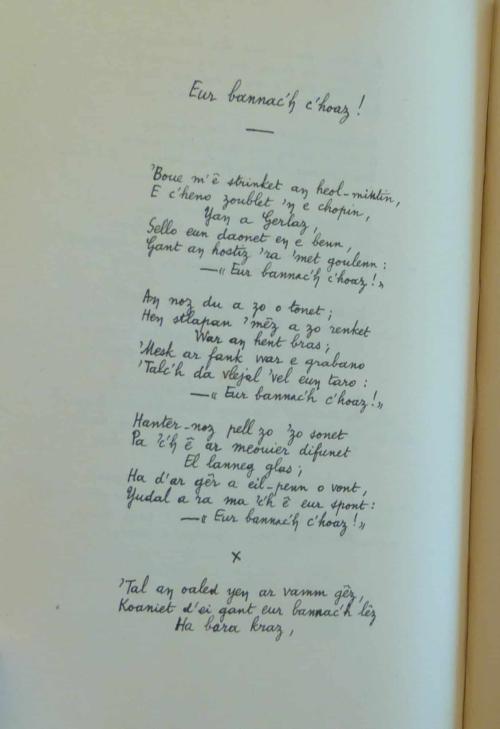 Eur bannac'h c'hoaz !
'Boue m'ê strinket an heol-mintin,
E c'heno zoublet 'n e chopin,
Yan a Gerlaz,
Sello eun daonet en e benn,
Gant an hostiz 'ra 'met goulenn :
—« Eur bannac'h c'hoaz ! »
An noz du a zo o tonet ;
Hen stlapan 'mêz a zo renket
War an hent bras ;
'Mesk ar fank war e grabano
'Talc'h da vlejal 'vel eun taro :
—« Eur bannac'h c'hoaz ! »
Hanter-noz pell zo 'zo sonet
Pa 'c'h ê ar meouier difunet
El lanneg glas ;
Ha d'ar gêr a eil-penn o vont,
Yudal a ra ma 'c'h ê eur spont :
—« Eur bannac'h c'hoaz ! »
×
'Tal an oaled yen ar vamm gêz,
Koaniet d'ei gant eur bannac'h lêz
Ha bara kraz,